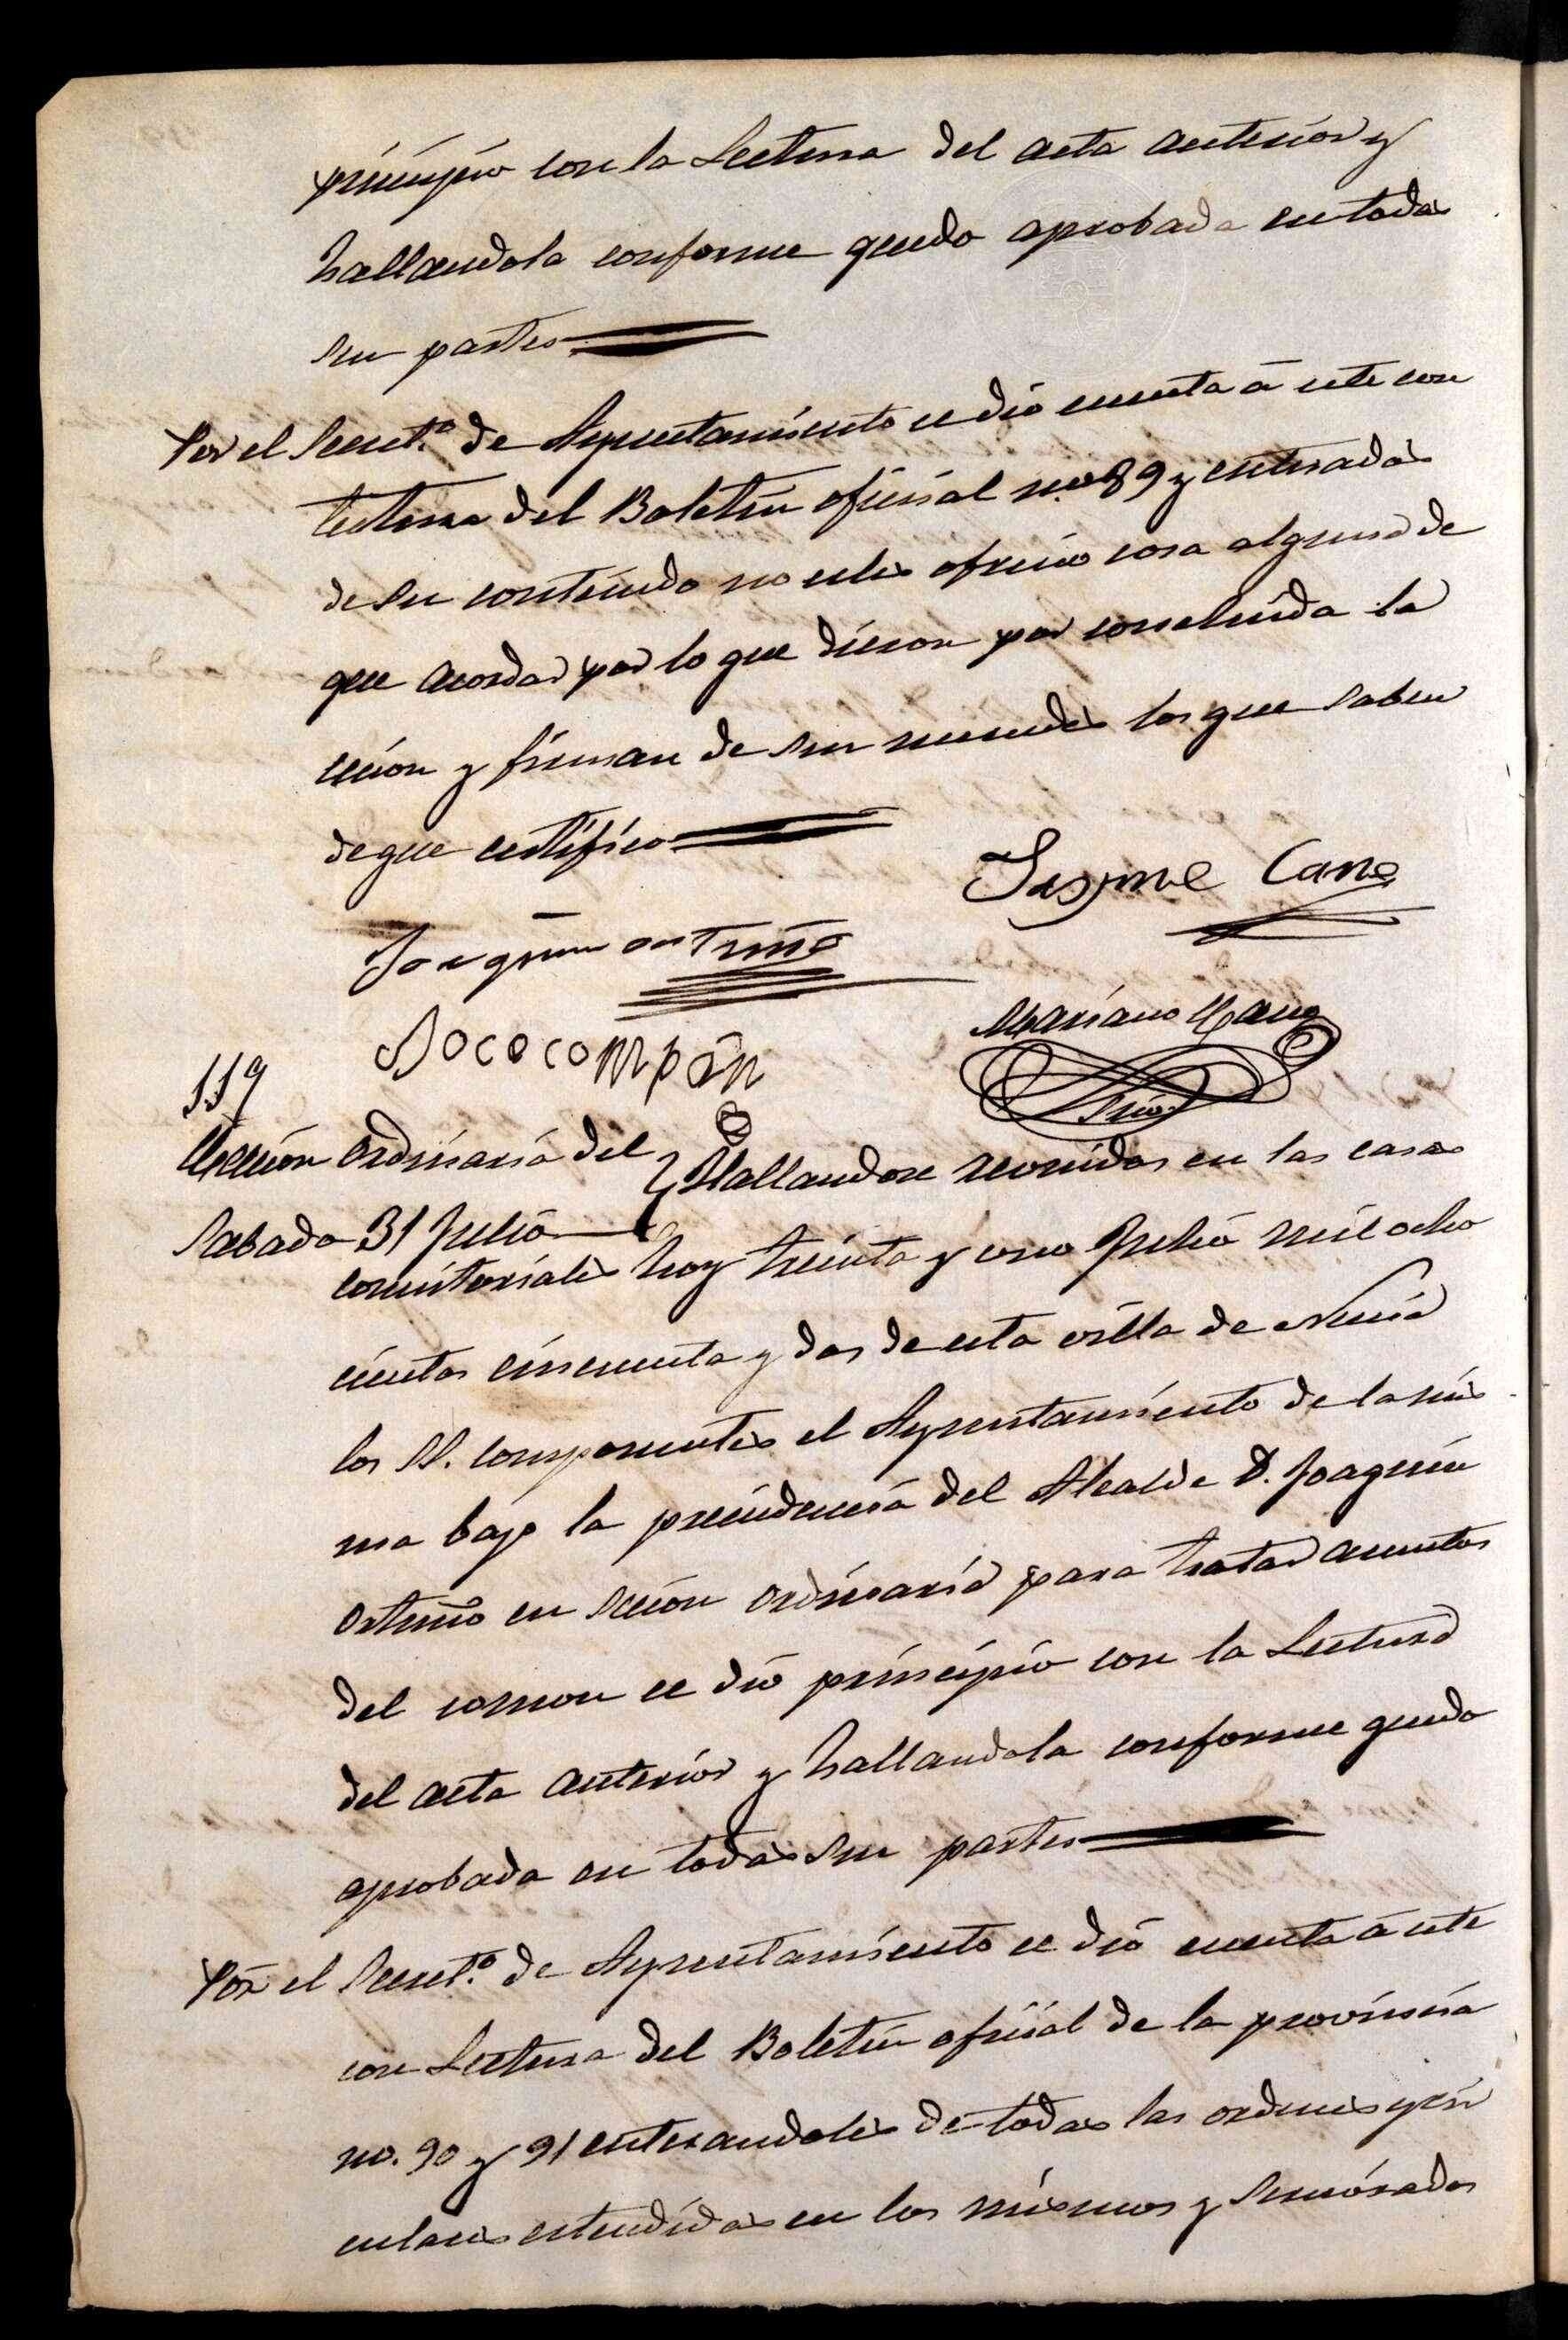 principio con la Lectura del acta anterior y
hallandola conforme quedo aprobada en todas
sus partes
Por el Secret.º de Ayuntamiento se dio cuenta á este con
Lectura del Boletin oficial n.º 89 y enterados
de su contenido no seles ofrecio cosa alguna de
que acordar por lo que dieron por concluida la
secion y firman de sus mercedes los que saben
de que certifico
Jayme Cano
Joaquin ortuño
Mariano Cano
Srio.
119
Seccion ordinaria del
Sabado 31 Julio
Hallandose reonidos en las casas
consitoriales hoy treinta y uno Julio mil ocho
cientos cincuenta y dos de esta villa de Nucia
los SS. componentes el Ayuntamiento de la mis
ma bajo la precidencia del Alcalde D. Joaquin
Ortuño en secion ordinaria para tratar acuntos
del comon se dió principio con la Lectura
del acta anterior y hallandola conforme quedo
aprobada en todas sus partes
Por el Secret.º de Ayuntamiento se dió cuenta á este
con Lectura del Boletin oficial de la provincia
no. 90 y 91 enterandoles de todas las ordenes y cir
culares estendidas en los mismos y